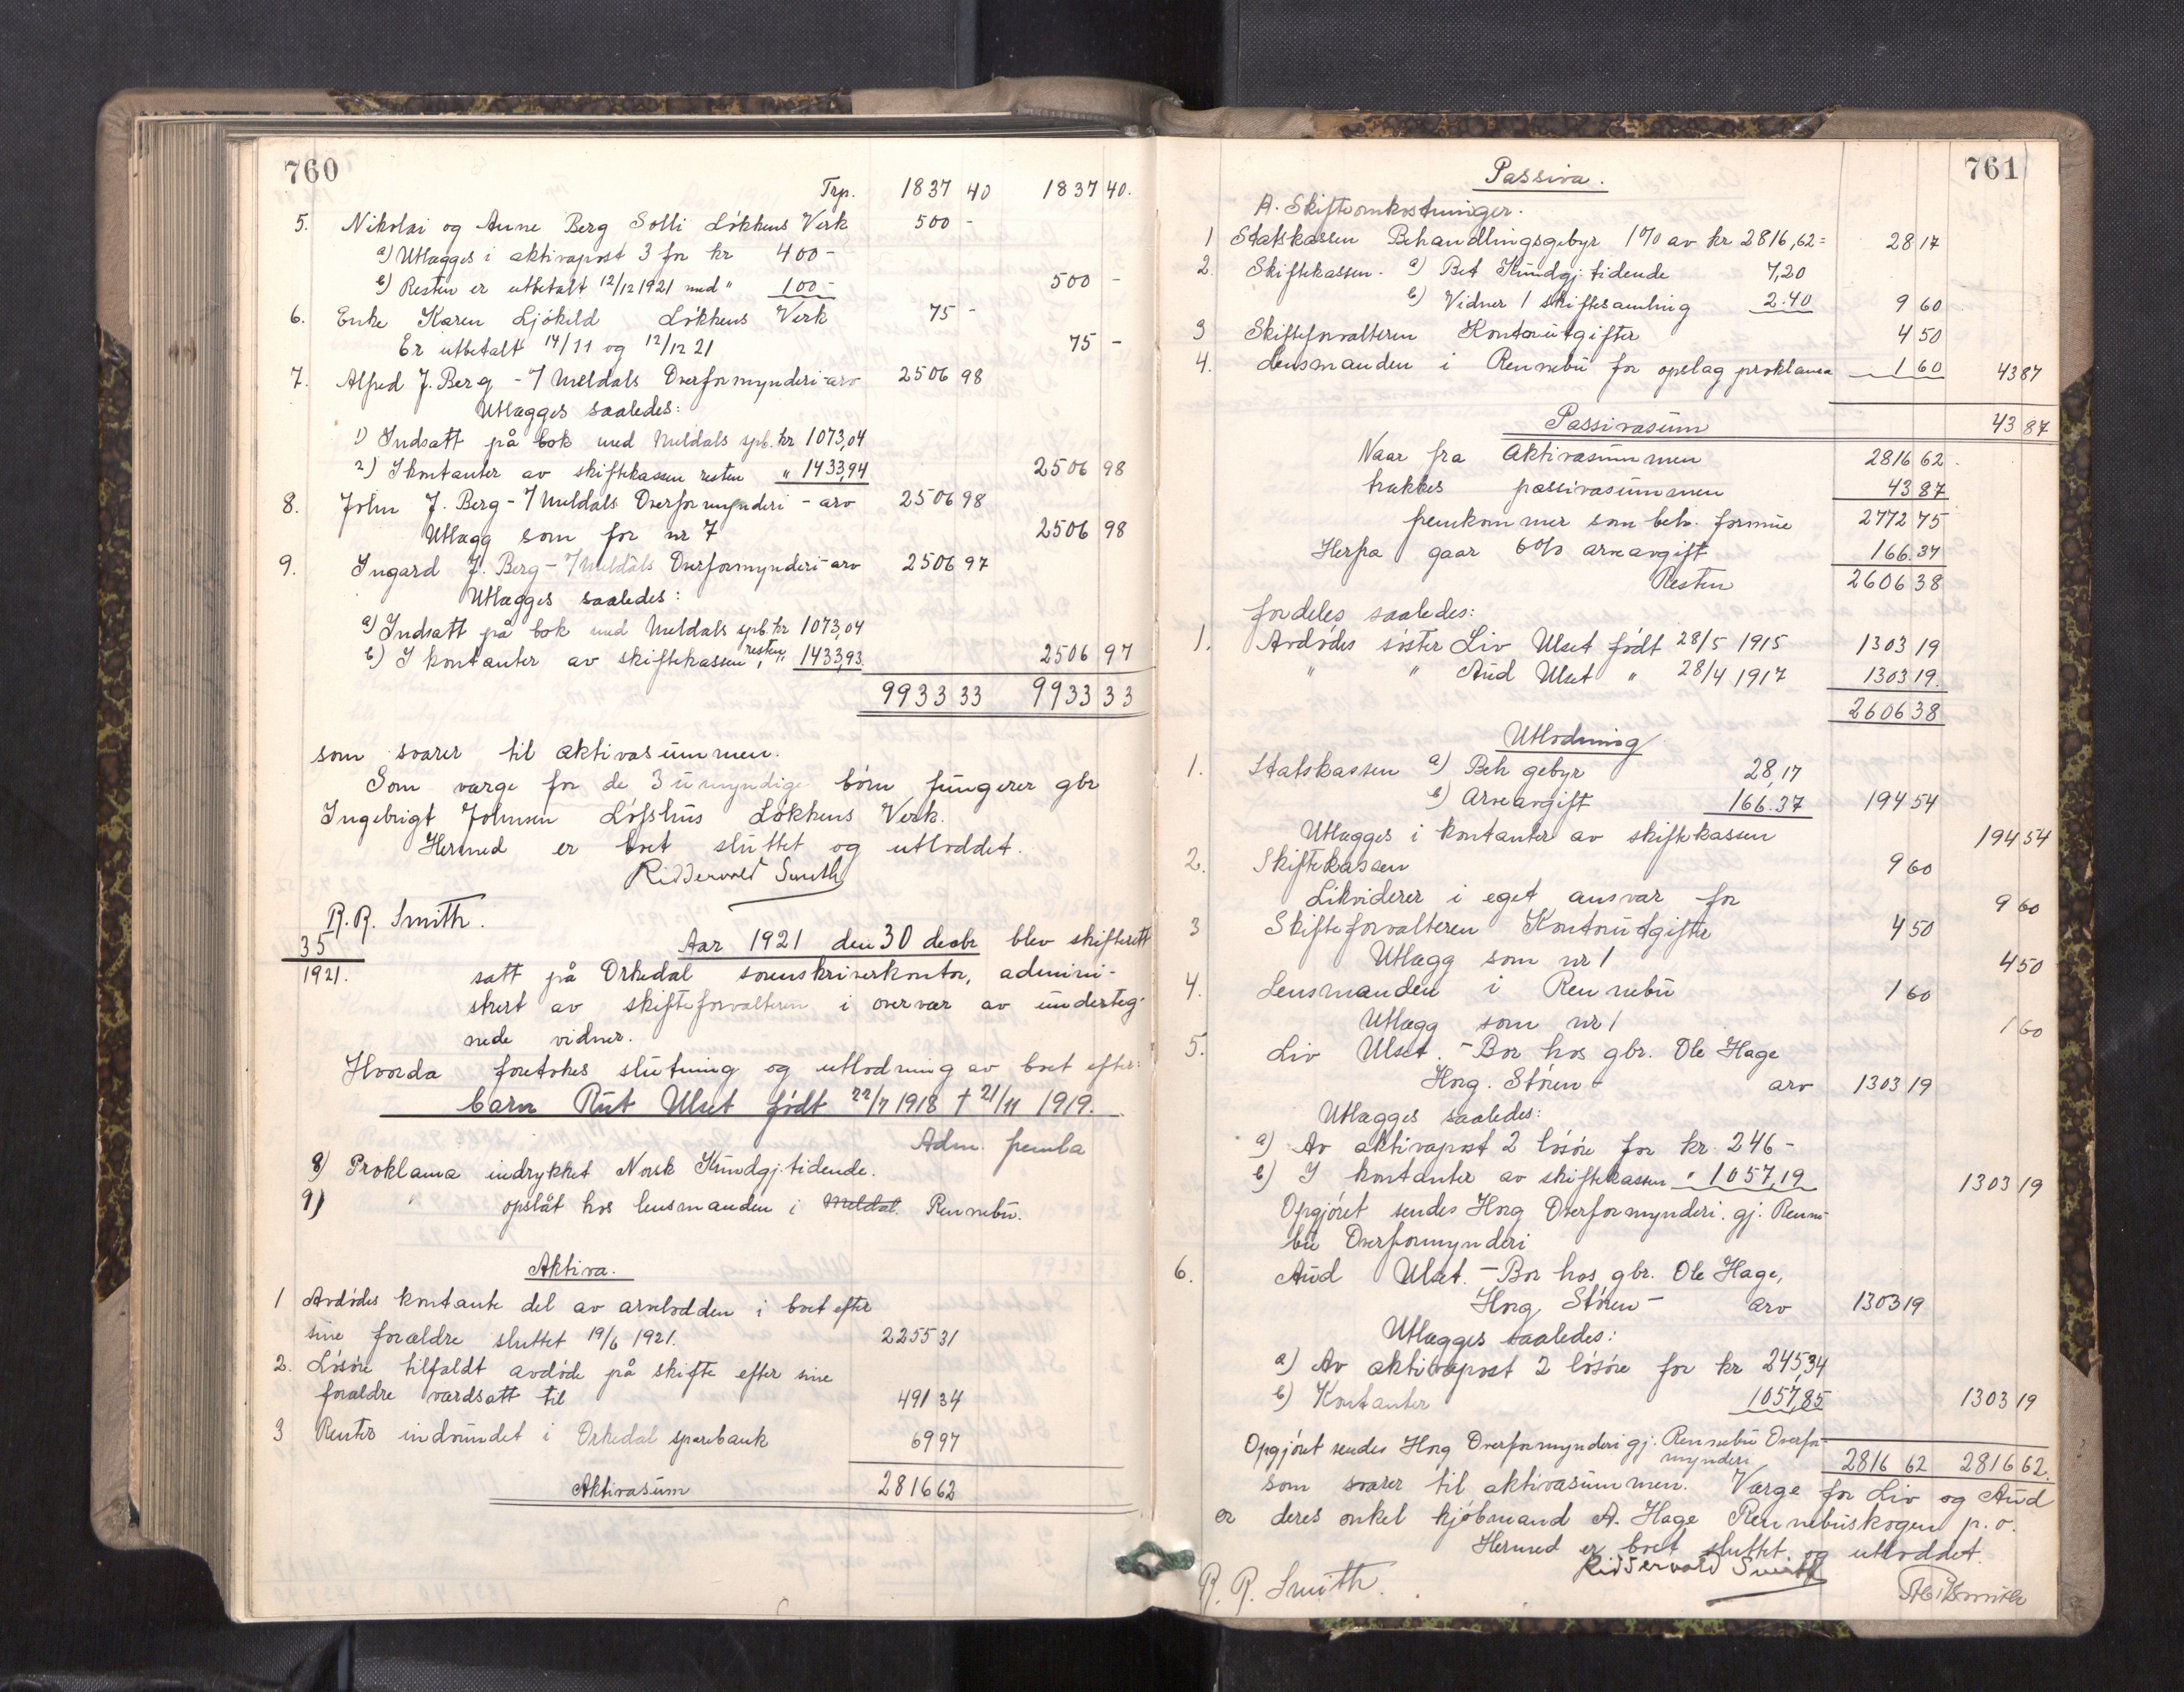 760
Trp. 1837 40 1837 40.
5. Nikolai og Anne Berg Solli Løkkens Verk 500 -
a) Utlægges i aktivapost 3 for kr 400 -
b) Resten er utbetalt 12/12 1921 med " 100 - 500 -
6. Enke Karen Ljøkeld Løkkens Verk 75 -
Er utbetalt 14/11 og 12/12 21 75 -
7. Alfred J. Berg - I Meldals Overformynderi - arv 2506 98
Utlægges saaledes:
1) Indsatt på bok med Meldals spb. kr 1073,04
2) I kontanter av skiftekassen resten " 1433,94 2506 98
8. John J. Berg - I Meldals Overformynderi - arv 2506 98
Utlægg som for nr 7 2506 98
9. Ingard J. Berg - I Meldals Overformynderi - arv 2506 97
Utlægges saaledes:
a) Indsatt på bok med Meldals spb. kr 1073,04
b) I kontanter av skiftekassen resten " 1433,93 2506 97
9933 33 9933 33
som svarer til aktivasummen.
Som værge for de 3 umyndige børn fungerer gbr
Ingebrigt Johnsen Løfshus Løkkens Verk.
Hermed er boet sluttet og utloddet.
Ridderwold Smith
R. R. Smith.
35
1921.
Aar 1921 den 30 decbr blev skifterett
satt på Orkedal sorenskriverkontor, admini-
strert av skifteforvalteren i overvær av underteg-
nede vidner.
Hvorda foretokes slutning og utlodning av boet efter:
barn Rut Ulset født 22/7 1918 † 21/11 1919.
Adm. fremla
8) Proklama indrykket Norsk Kundgj. tidende.
9) " opslåt hos lensmanden i Meldal. Rennebu.
Aktiva.
1 Avdødes kontante del av arvelodden i boet efter
sine forældre sluttet 19/6 1921. 2255 31
2. Løsøre tilfaldt avdøde på skifte efter sine
forældre værdsatt til 491 34
3 Renter indvundet i Orkedal sparebank 69 97
Aktivasum 2816 62
761
Passiva.
A. Skifteomkostninger.
1 Statskassen Behandlingsgebyr 1% av kr 2816,62 = 28 17
2. Skiftekassen. a) Bet Kundgj. tidende 7,20
b) Vidner 1 skiftesamling 2.40 9 60
3 Skifteforvalteren Kontorutgifter 4 50
4. Lensmanden i Rennebu for opslag proklama 1 60 43 87
Passivasum 43 87
Naar fra Aktivasummen 2816 62
trækkes passivasummen 43 87
fremkommer som beh. formue 2772 75
Herfra gaar 6% arveavgift 166.37
Resten 2606 38
fordeles saaledes:
1. Avdødes søster Liv Ulset født 28/5 1915 1303 19
" " Aud Ulset " 28/4 1917 1303 19.
2606 38
Utlodning
1. Statskassen a) Beh gebyr 28,17
b) Arveavgift 166.37 194 54
Utlægges i kontanter av skiftekassen 194 54
2. Skiftekassen 9 60
Likviderer i eget ansvar for 9 60
3 Skifteforvalteren Kontorutgifter 4 50
Utlægg som nr 1 4 50
4. Lensmanden i Rennebu 1 60
Utlægg som nr 1 1 60
5. Liv Ulset. - Bor hos gbr. Ole Hage
Horg. Støren - arv 1303 19
Utlægges saaledes:
a) Av aktivapost 2 løsøre for kr. 246 -
b) I kontanter av skiftekassen " 1057,19 1303 19
Opgjøret sendes Horg Overformynderi. gj. Renne-
bu Overformynderi
6. Aud Ulset. - Bor hos gbr. Ole Hage,
Horg Støren - arv 1303 19
Utlægges saaledes:
a) Av aktivapost 2 løsøre for kr 245,34
b) Kontanter 1057,85 1303 19
Opgjøret sendes Horg Overformynderi gj. Rennebu Overfor-
mynderi
2816 62 2816 62.
som svarer til aktivasummen. Værge for Liv og Aud
er deres onkel kjøbmand A. Hage Rennebuskogen p. o.
Hermed er boet sluttet og utloddet.
Ridderwold Smith
R. R. Smith.